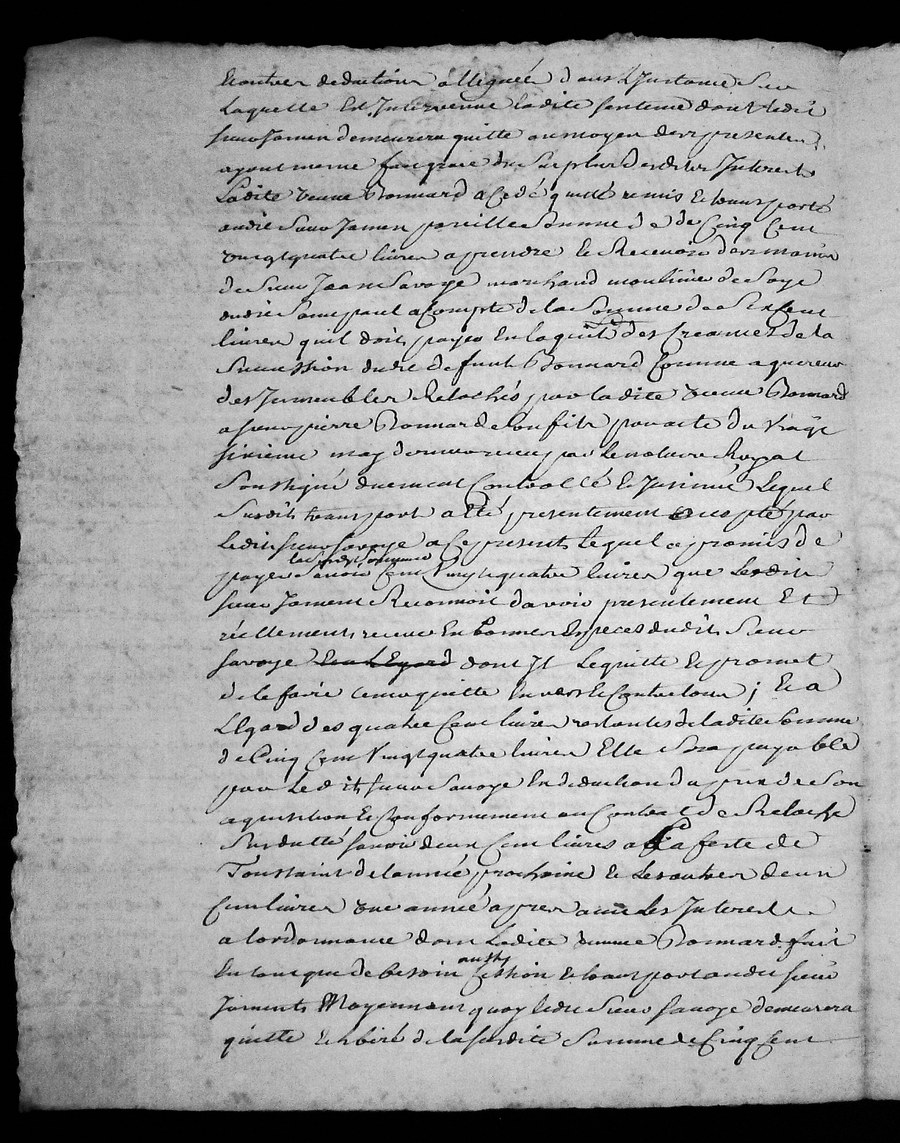 et autres deductions alleguées dans L'Instance Sur
Laquelle Est Intervenue ladite sentence dont Ledit
sieur Jamen demeurera quitte au moyen des presentes,
ayant meme fait grace du Surplus desdites Interests
Ladite veuve Bonnard a Cedé quitté remis et transporté
audit Sieur Jamen pareille Somme de de Cinq Cent
vingt quatre livres a prendre et Recevoir des mains
de Sieur Jean Savoye marchand moulinie de Soye
audit a Compte de la Somme de Sept Cent
livres quil doit payer En laquit des Creanciers de la
Succession dudit defunt Bonnard Comme aquereur
des Immeubles Relachés par ladite veuve Bonnard
a sieur pierre Bonnard Son fils par acte du vingt
sixieme may dernier receu par Le notaire Royal
Soussigné duement Controllé et Insinué Lequel
Susdit transport a été presentement accepté par
Ledit sieur Savoye a Ce present, Lequel a promis de
payer la susd somme Savoir Cent Vingt quatre livres que Ledit
sieur Jament Reconnoit davoir presentement Et
réellement receue En bonnes Especes dudit Sieur
Savoye Et a L'Egard dont Il Lequitte et promet
de le faire tenir quitte Envers et Contre tous ; Et a
L'Egard des quatre Cent livres restantes de ladite Somme
de Cinq Cent Vingt quatre livres Elle Sera payable
par Ledit sieur Savoye En deduction du prix de Son
aquisition et Conformement au Contrat de Relache
Susdatté savoir deux Cent livres a La feste de
Toussaint de lannée prochaine et Les autres deux
Cent livres une année apres avec Les Interests
a lordonnance dont Ladite veuve Bonnard fait
En tant que de besoin aussy Cession et transport audit sieur
Jament, Moyennant quoy ledit Sieur Savoye demeurera
quitte et libre de la susdite Somme de Cinq Cent